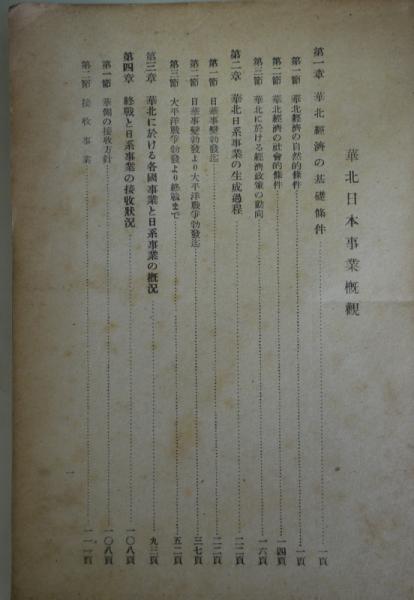 華北日本事業概觀
第一章 華北經濟の基礎條件 一頁
第一節 華北經濟の自然的條件 一頁
第二節 華北經濟の社會的條件 一四頁
第三節 華北に於ける經濟政策の動向 一六頁
第二章 華北日系事業の生成過程 二二頁
第一節 日華事變勃發迄 二二頁
第二節 日華事變勃發より大平洋戰爭勃發迄 三七頁
第三節 大平洋戰爭勃發より終戰まで 五二頁
第三章 華北に於ける各國事業と日系事業の概況 九三頁
第四章 終戰と日系事業の接收狀況 一〇八頁
第一節 華側の接收方針 一〇八頁
第二節 接收事業 一一一頁
一